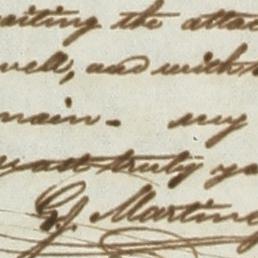 waiting the attac
well, and with
main - my
most truly yo
G. J. Martin